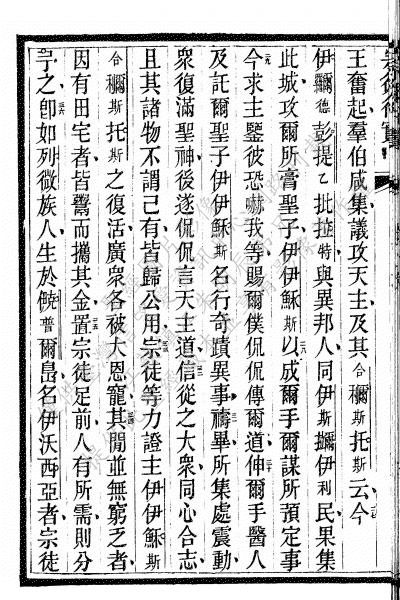 王奮起羣伯咸集議攻天主及其合穪斯托斯云今
伊𤫊德彭提乙批拉特與異邦人同伊斯𤫊伊利民果集
此城攻爾所膏聖子伊伊穌斯二八以成爾手爾謀所預定事
二九今求主鑒彼恐嚇我等賜爾僕侃侃傳爾道三十伸爾手醫人
及託爾聖子伊伊穌斯名行奇蹟異事三一禱畢所集處震動
衆復滿聖神後遂侃侃言天主道三二信從之大衆同心合志
且其諸物不謂己有皆歸公用三三宗徒等力證主伊伊穌斯
合穪斯托斯之復活廣衆各被大恩寵三四其閒並無窮乏者
因有田宅者皆鬻而攜其金三五置宗徒足前人有所需則分
予之三六卽如列微族人生於𠹌普爾島名伊沃西亞者宗徒